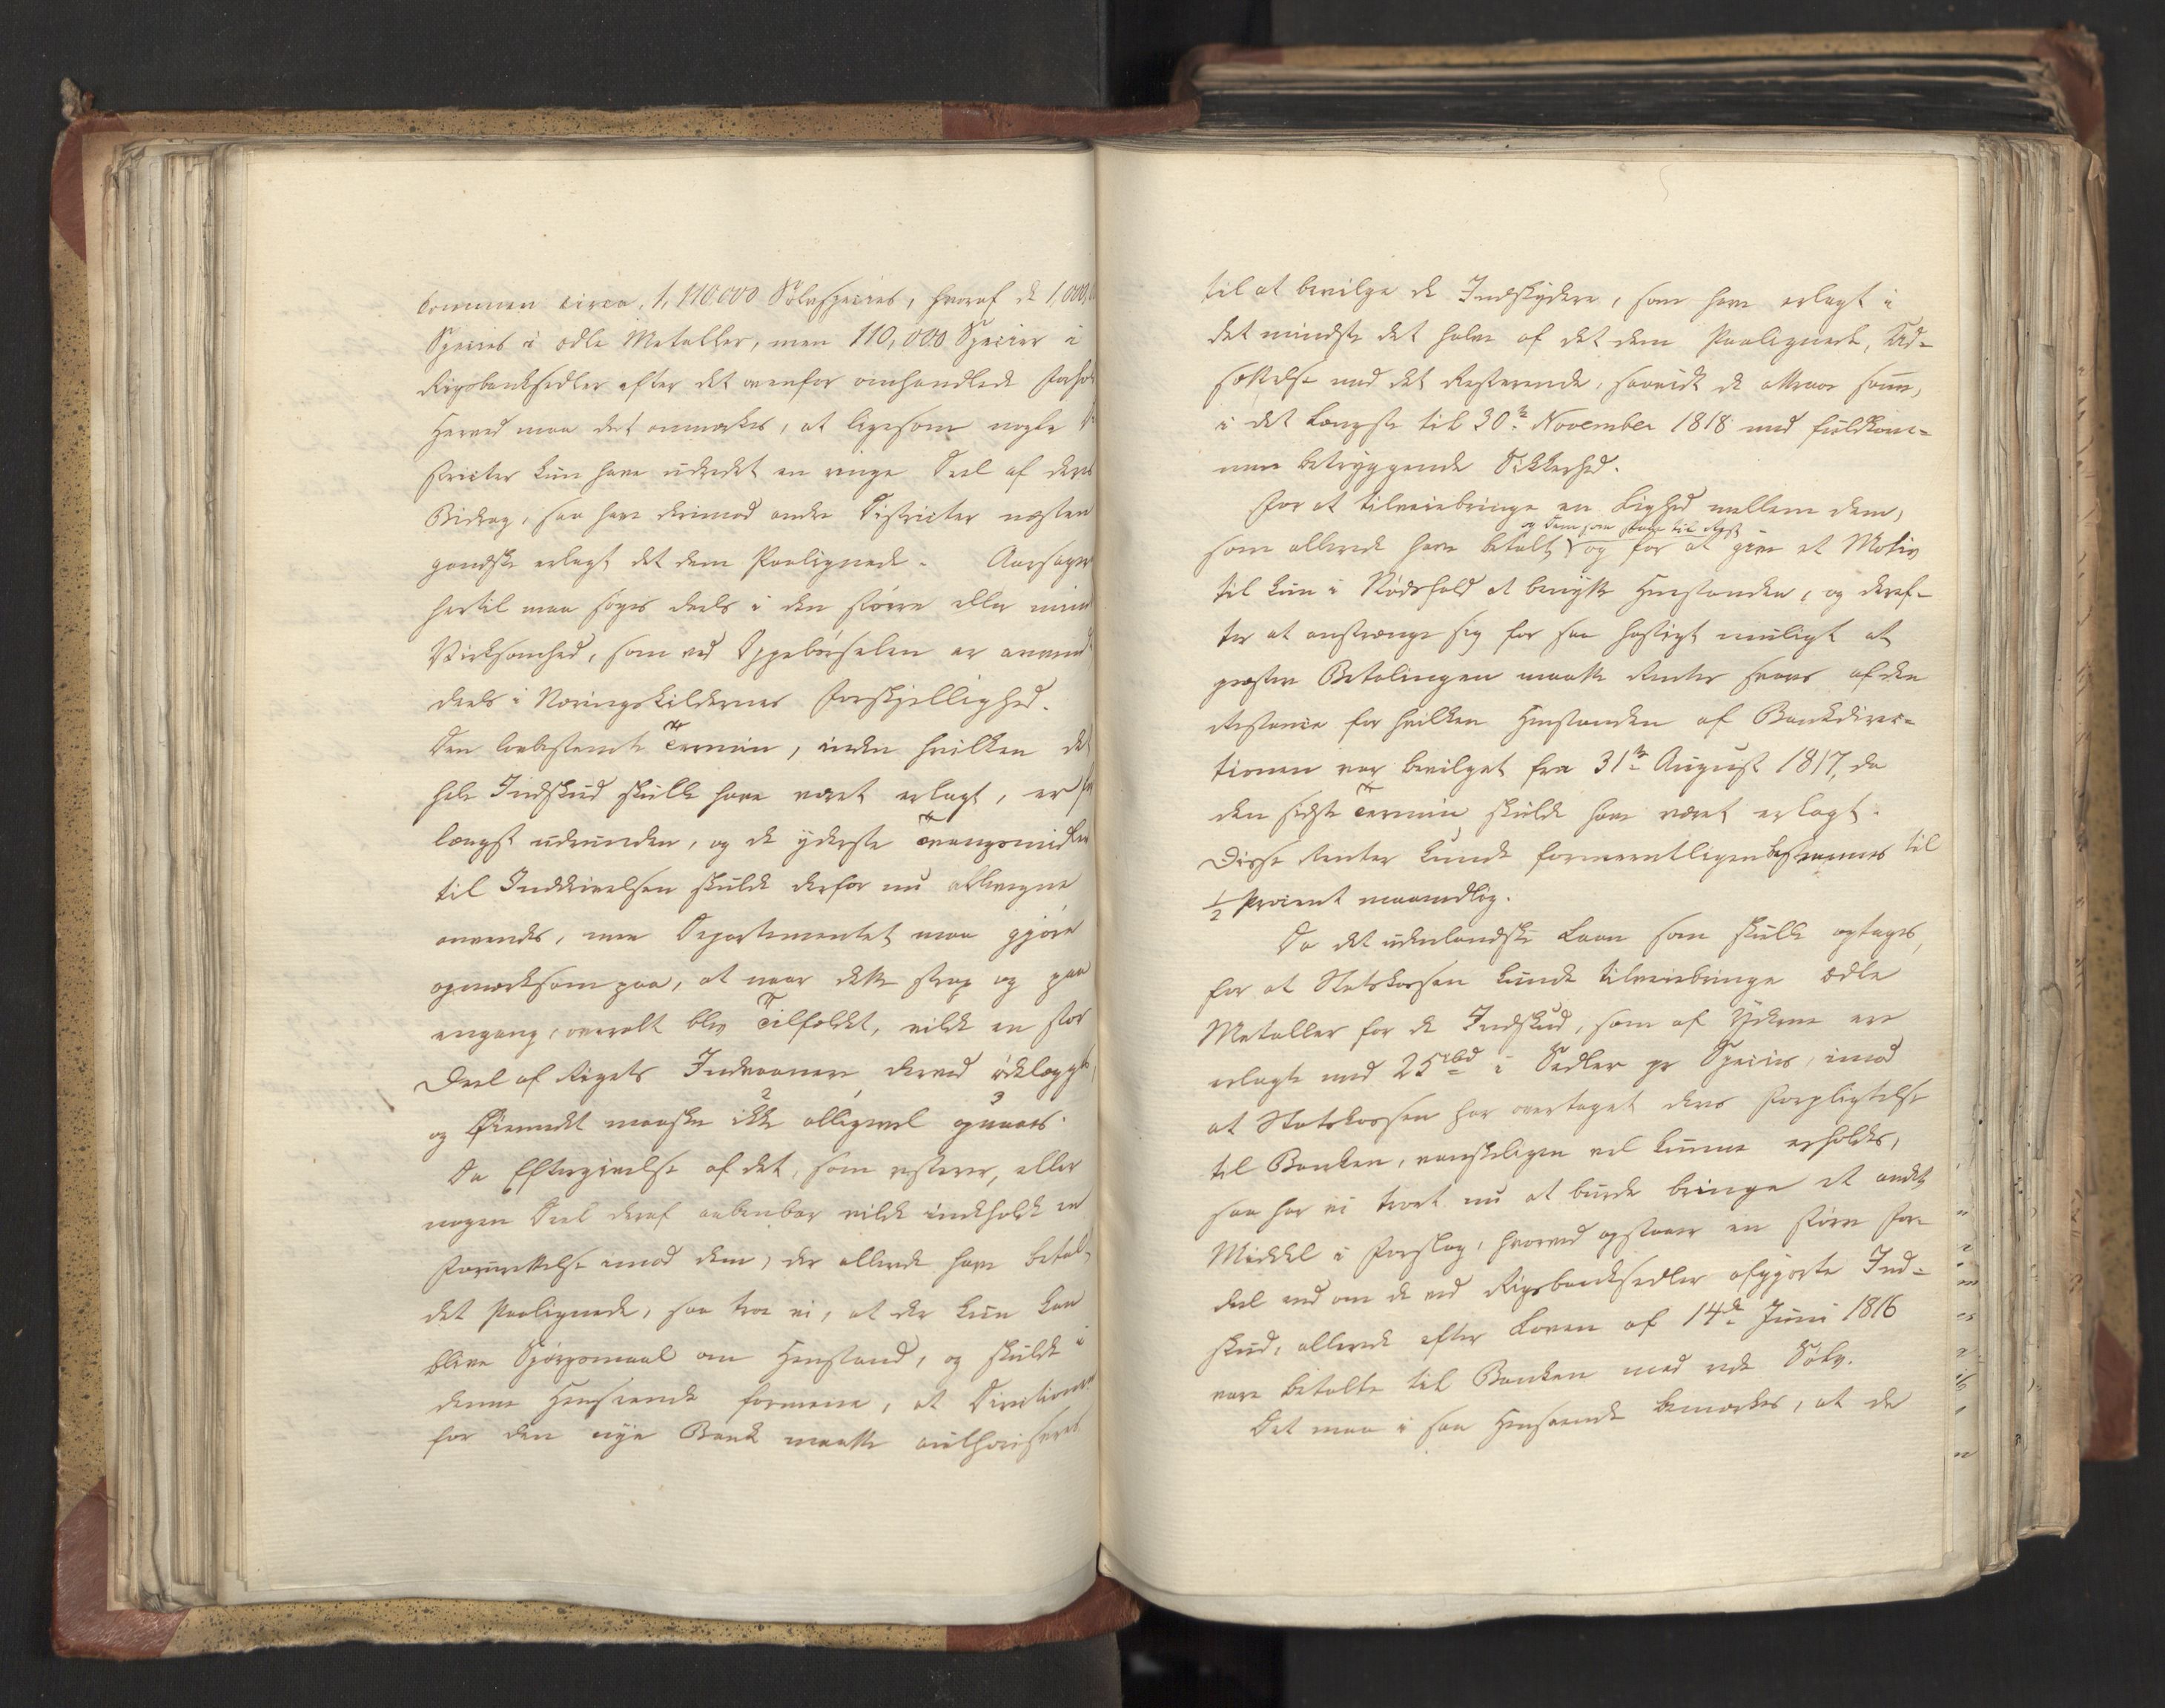 kommen circa 1,110,000 Sølvspecies, hvoraf de 1,000,0
Species i ædle Metaller, men 110,000 Species i
Rigsbanksedler efter det ovenfor omhandlede Forhol
Herved maa det anmærkes, at ligesom nogle Di
stricter kun have udredet en ringe Deel af deres
Bidrag, saa have derimod andre Districter næsten
gandske erlagt det dem Paalignede. Aarsagen
hertil maa søges deels i den større eller mind
Virksomhed, som ved Oppebørselen er anvend
deels i Næringskildernes Forskjellighed.
Den lovbestemte Termin, inden hvilken det
hele Indskud skulle have været erlagt, er for
længst udrunden, og de yderste Tvangsmidler
til Inddrivelsen skulde derfor nu allevegne
anvendes, men Departementet maa gjøre
opmærksom paa, at naar dette strax og paa
engang, overalt blev Tilfældet, vilde en stor
Deel af Rigets Indvaanere derved ødelægges,
og Øiemedet maaskee ikke alligevel opnaaes.
Da Eftergivelse af det, som resterer, eller
nogen Deel deraf aabenbar vilde indeholde en
Forurettelse imod dem, der allerede have betalt
det Paalignede, saa troe vi, at der kun kan
blive Spørgsmaal om Henstand, og skulde i
denne Henseende formene, at Directionen
for den nye Bank maatte authoriseres
til at bevilge de Indskydere, som have erlagt i
det mindste det halve af det dem Paalignede, Ud-
sættelse med det Resterende, saavidt de attraae samme,
i det længste til 30te November 1818 mod fuldkom-
men betryggende Sikkerhed.
For at tilveiebringe en Lighed mellem dem,
og dem som staae til Rest
som allerede have betalt, og for at give et Motiv
til kun i Nødsfald at benytte Henstanden, og deref-
ter at anstrænge sig for saa hastigt muligt at
præstere Betalingen maatte Renter svares af den
Restance for hvilken Henstanden af Bankdirec-
tionen var bevilget fra 31te August 1817, da
den sidste Termin skulde have været erlagt.
Disse Renter kunde formeentligen bestemmes til
1/2 Procent maanedlig.
Da det udenlandske Laan som skulle optages,
for at Statskassen kunde tilveiebringe ædle
Metaller for de Indskud, som af Yderne ere
erlagte med 25 rbd i Sedler pr Species, imod
at Statskassen har overtaget deres Forpligtelse
til Banken, vanskeligen vil kunne erholdes,
saa har vi troet nu at burde bringe et andet
Middel i Forslag, hvorved opstaaer en større For-
deel end om de ved Rigsbanksedler afgjorte Ind-
skud, allerede efter Loven af 14de Juni 1816
vare betalte til Banken med rede Sølv.
Det maa i saa Henseende bemærkes, at de